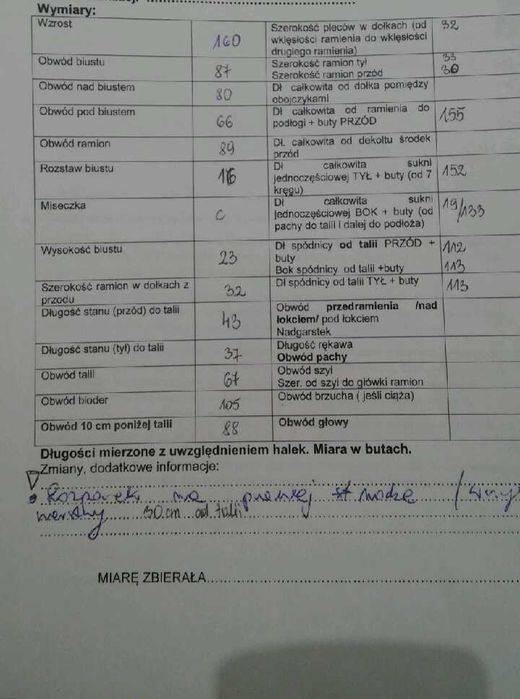 Wymiary:
Wzrost 160 Szerokość pleców w dołkach (od
wklęsłości ramienia do wklęsłości
drugiego ramienia) 32
Obwód biustu 87 Szerokość ramion tył 33
Szerokość ramion przód 30
Obwód nad biustem 80 Dł całkowita od dołka pomiędzy
obojczykami
Obwód pod biustem 66 Dł całkowita od ramienia do
podłogi + buty PRZÓD 155
Obwód ramion 89 Dł. całkowita od dekoltu środek
przód
Rozstaw biustu 16 Dł całkowita sukni
jednoczęściowej TYŁ + buty (od 7
kręgu) 152
Miseczka C Dł całkowita sukni
jednoczęściowej BOK + buty (od
pachy do talii i dalej do podłoża) 19/133
Wysokość biustu 23 Dł spódnicy od talii PRZÓD +
buty 112
Bok spódnicy od talii +buty 113
Szerokość ramion w dołkach z
przodu 32 Dł spódnicy od talii TYŁ + buty 113
Długość stanu (przód) do talii 43 Obwód przedramienia /nad
łokciem/ pod łokciem
Nadgarstek
Długość stanu (tył) do talii 37 Długość rękawa
Obwód pachy
Obwód talii 67 Obwód szyi
Szer. od szyi do główki ramion
Obwód bioder 105 Obwód brzucha ( jeśli ciąża)
Obwód 10 cm poniżej talii 88 Obwód głowy
Długości mierzone z uwzględnieniem halek. Miara w butach.
Zmiany, dodatkowe informacje:
Rozporek na prawej nodze
30cm od talii
MIARĘ ZBIERAŁA